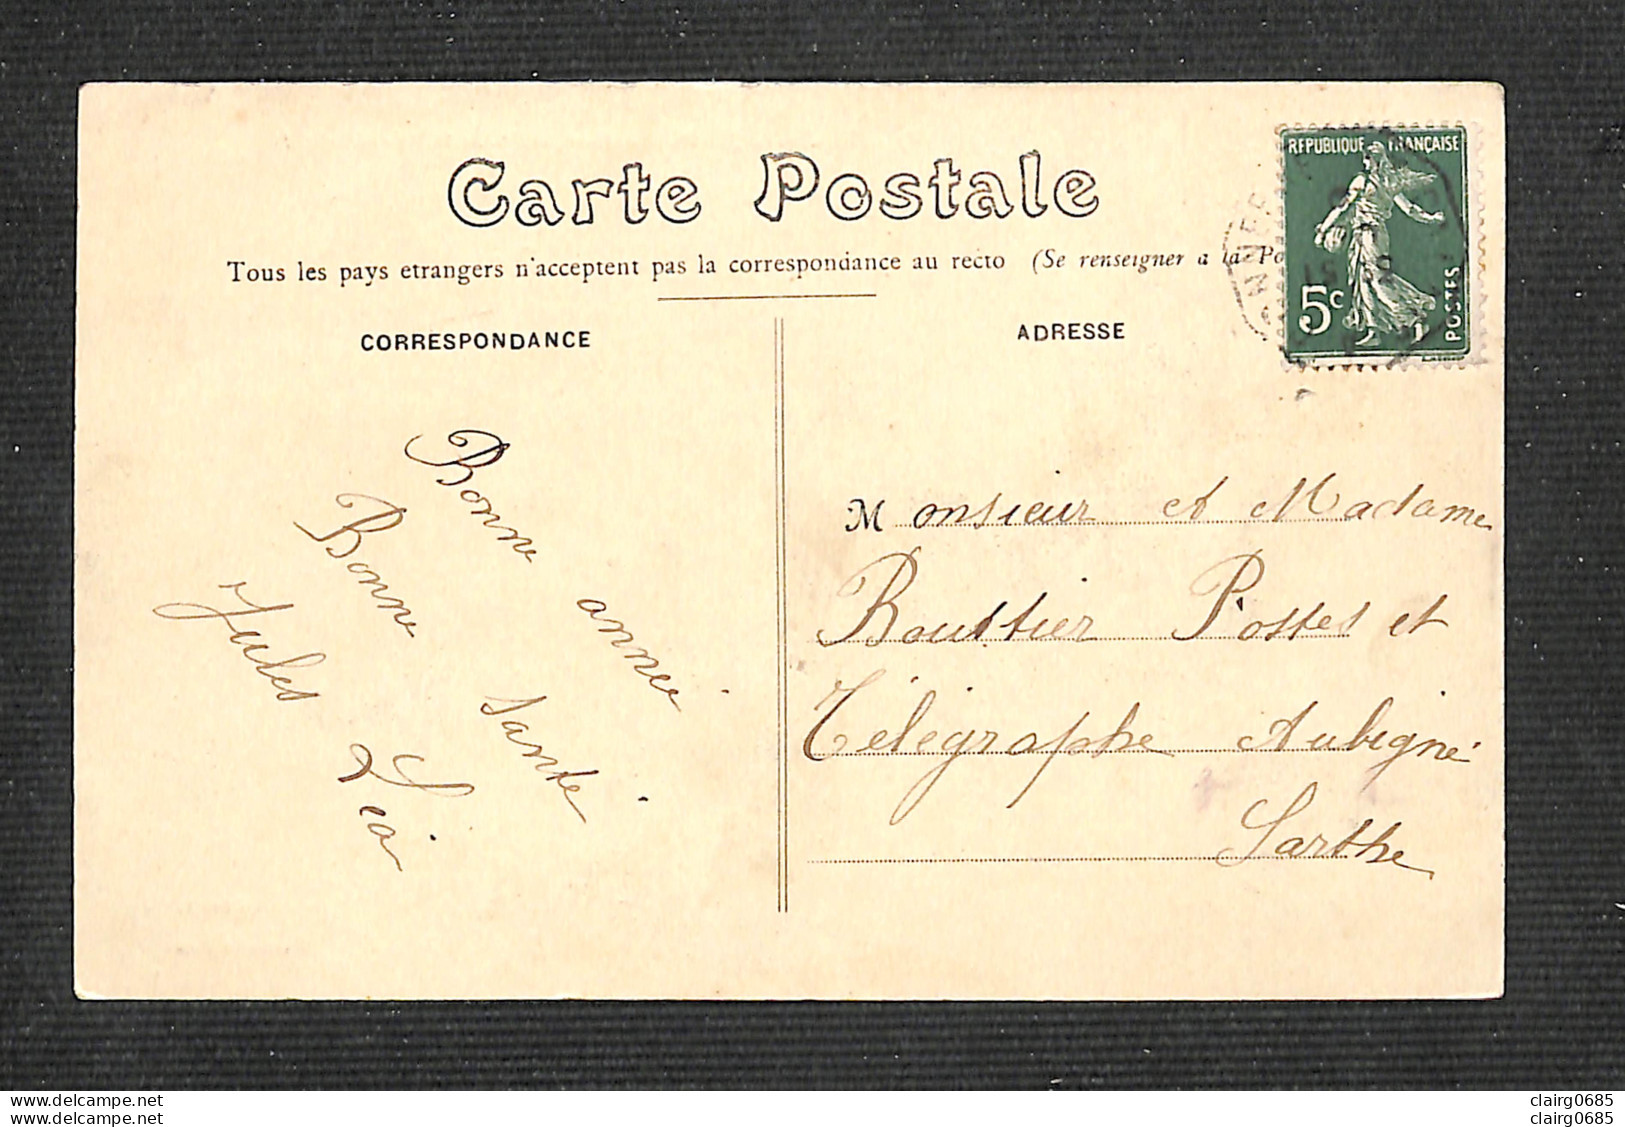 Carte Postale
Tous les pays etrangers n'acceptent pas la correspondance au recto (Se renseigner a la Po
CORRESPONDANCE
ADRESSE
REPUBLIQUE FRANÇAISE
5c
POSTES
Bonne année
Bonne santé
Jules Léa
Monsieur et Madame
Bouttier Postes et
Télégraphe Aubigné
Sarthe
delcampe.net
clairg0685
delcampe.net
clairg0685